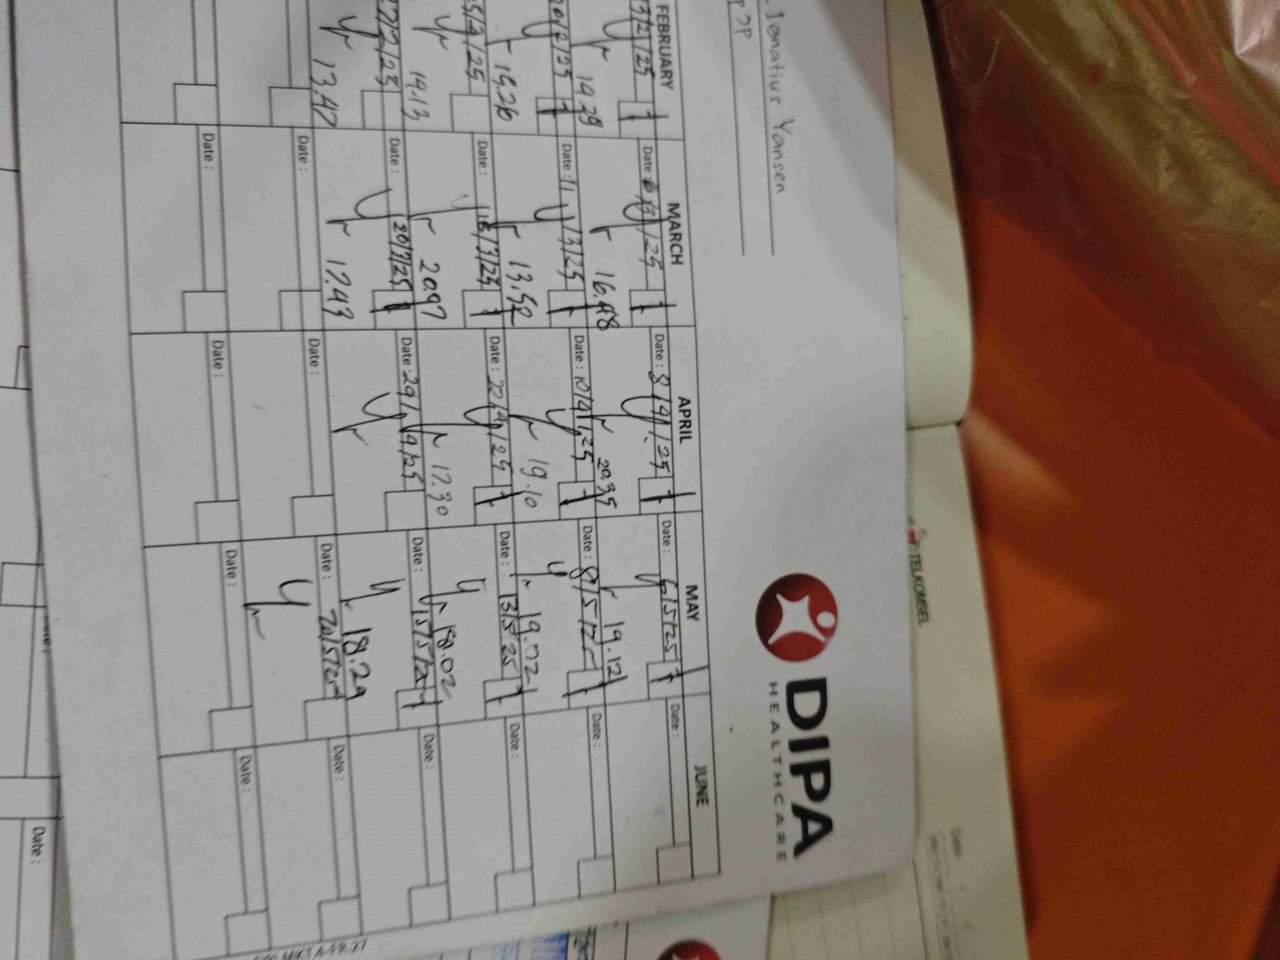 DIPA
HEALTHCARE
Jonatius Yansen
FEBRUARY
MARCH
APRIL
MAY
JUNE
Date :
Date : 8/4/25
Date : 6/5/25
Date :
14.28
16.48
20.35
19.12
Date : 11/3/25
Date : 10/4/25
Date : 8/5/25
Date :
15.26
13.52
19.10
19.02
Date : 18/3/25
Date : 22/4/25
Date : 13/5/25
Date :
14.13
20.97
17.30
18.02
Date : 20/3/25
Date : 29/4/25
Date : 15/5/25
Date :
13.47
17.43
18.29
Date :
Date :
Date : 20/5/25
Date :
Date :
Date :
Date :
Date :
TELKOMSEL
Date :